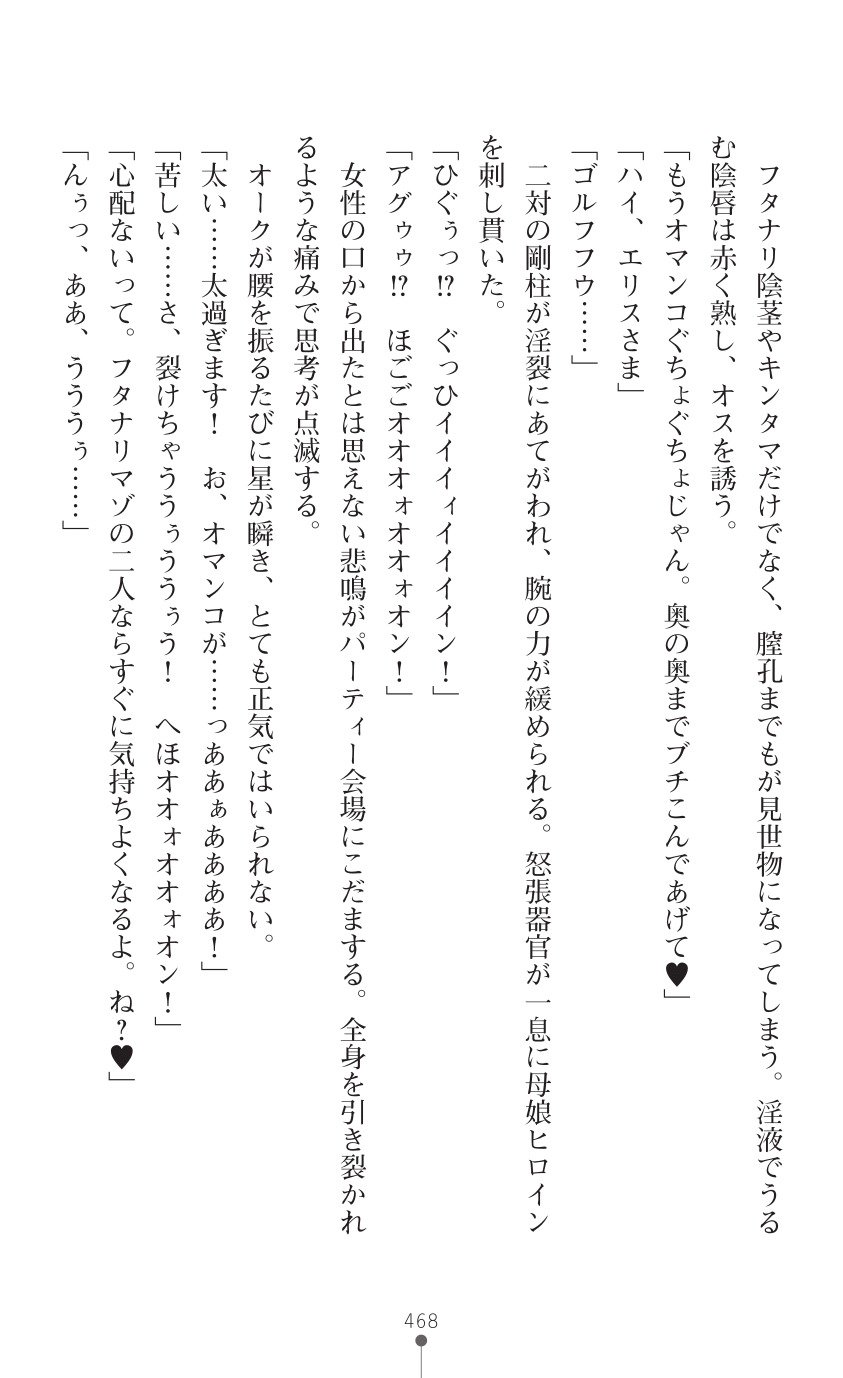 フタナリ陰茎やキンタマだけでなく、膣孔までもが見世物になってしまう。淫液でうる
む陰唇は赤く熟し、オスを誘う。
「もうオマンコぐちょぐちょじゃん。奥の奥までブチこんであげて♥」
「ハイ、エリスさま」
「ゴルフフウ……」
二対の剛柱が淫裂にあてがわれ、腕の力が緩められる。怒張器官が一息に母娘ヒロイン
を刺し貫いた。
「ひぐぅっ!?　ぐっひイイイィイイイイン！」
「アグゥゥ!?　ほごごオオオォオオォオン！」
女性の口から出たとは思えない悲鳴がパーティー会場にこだまする。全身を引き裂かれ
るような痛みで思考が点滅する。
オークが腰を振るたびに星が瞬き、とても正気ではいられない。
「太い……太過ぎます！　お、オマンコが……っああぁああああ！」
「苦しい……さ、裂けちゃううぅううぅう！　へほオオォオオォオン！」
「心配ないって。フタナリマゾの二人ならすぐに気持ちよくなるよ。ね？♥」
「んぅっ、ああ、うううぅ……」
468